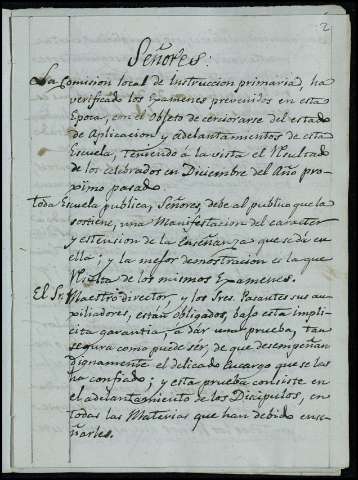 2
Señores:
La Comision local de Instruccion primaria, ha
verificado los Examenes prevenidos en esta
Epoca, con el Objeto de cerciorarse del estado
de Aplicacion y adelantamientos de esta
Escuela, teniendo á la vista el Resultado
de los celebrados en Diciembre del Año pro-
ximo pasado.
Toda Escuela publica, Señores, debe al publico que la
sostiene, una Manifestacion del caracter
y estension de la Enseñanza que se dá en
ella; y la mejor demostracion es la que
Resulta de los mismos Examenes.
El Sr. Maestro director, y los Sres. Pasantes sus au-
xiliadores, están obligados, bajo esta impli-
cita garantia, a dar una prueba, tan
segura como puede ser, de que desempeñan
dignamente el delicado Encargo que se les
ha confiado; y esta prueba consiste en
el adelantamiento de los Discipulos, en
todas las Materias que han debido ense-
ñarles.